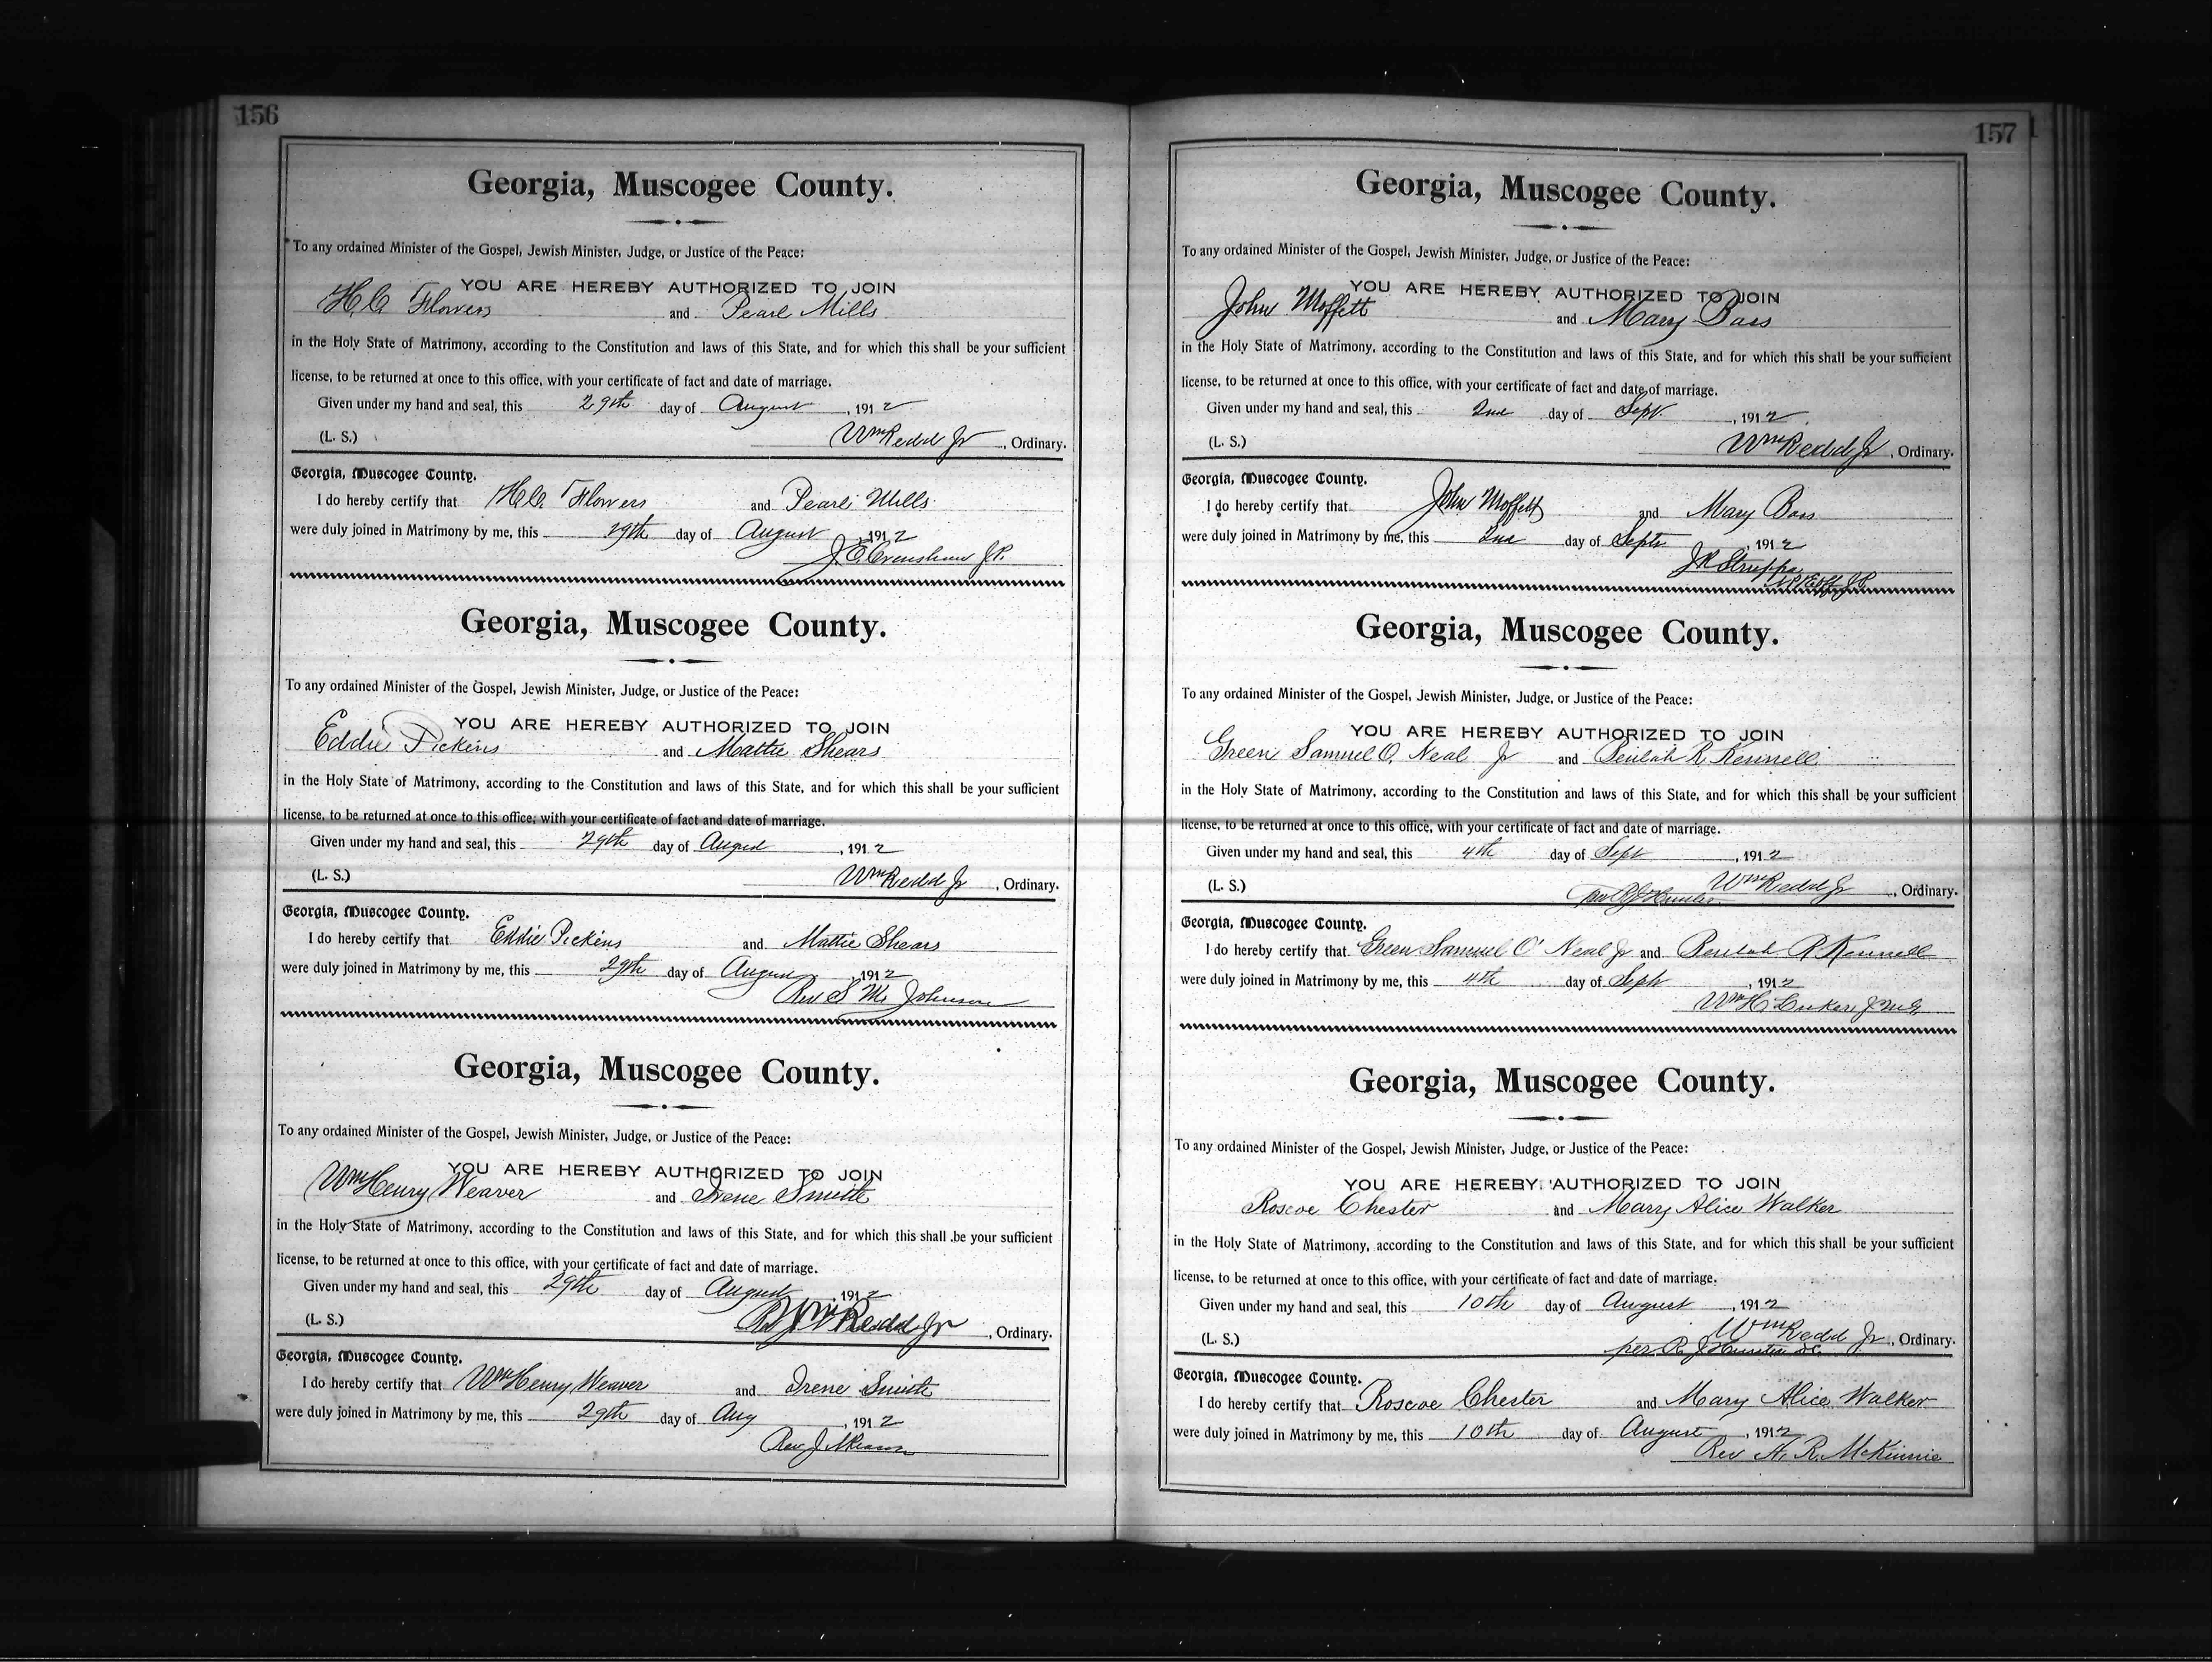 156
Georgia, Muscogee County.
To any ordained Minister of the Gospel, Jewish Minister, Judge, or Justice of the Peace:
YOU ARE HEREBY AUTHORIZED TO JOIN
H.C. Flowers and Pearl Mills
in the Holy State of Matrimony, according to the Constitution and laws of this State, and for which this shall be your sufficient
license, to be returned at once to this office, with your certificate of fact and date of marriage.
Given under my hand and seal, this 29th day of August, 1912
(L. S.) Wm Redd Jr, Ordinary.
Georgia, Muscogee County.
I do hereby certify that H.C. Flowers and Pearl Mills
were duly joined in Matrimony by me, this 29th day of August, 1912
J.E. Crenshaw J.P.
Georgia, Muscogee County.
To any ordained Minister of the Gospel, Jewish Minister, Judge, or Justice of the Peace:
YOU ARE HEREBY AUTHORIZED TO JOIN
Eddie Pickens and Mattie Shears
in the Holy State of Matrimony, according to the Constitution and laws of this State, and for which this shall be your sufficient
license, to be returned at once to this office, with your certificate of fact and date of marriage.
Given under my hand and seal, this 29th day of August, 1912
(L. S.) Wm Redd Jr, Ordinary.
Georgia, Muscogee County.
I do hereby certify that Eddie Pickens and Mattie Shears
were duly joined in Matrimony by me, this 29th day of August, 1912
Rev S M Johnson
Georgia, Muscogee County.
To any ordained Minister of the Gospel, Jewish Minister, Judge, or Justice of the Peace:
YOU ARE HEREBY AUTHORIZED TO JOIN
Wm Henry Weaver and Irene Smith
in the Holy State of Matrimony, according to the Constitution and laws of this State, and for which this shall be your sufficient
license, to be returned at once to this office, with your certificate of fact and date of marriage.
Given under my hand and seal, this 29th day of August, 1912
(L. S.) Wm Redd Jr, Ordinary.
Georgia, Muscogee County.
I do hereby certify that Wm Henry Weaver and Irene Smith
were duly joined in Matrimony by me, this 29th day of Aug, 1912
Rev J
157
Georgia, Muscogee County.
To any ordained Minister of the Gospel, Jewish Minister, Judge, or Justice of the Peace:
YOU ARE HEREBY AUTHORIZED TO JOIN
John Moffett and Mary Bass
in the Holy State of Matrimony, according to the Constitution and laws of this State, and for which this shall be your sufficient
license, to be returned at once to this office, with your certificate of fact and date of marriage.
Given under my hand and seal, this 2nd day of Sept, 1912
(L. S.) Wm Redd Jr, Ordinary.
Georgia, Muscogee County.
I do hereby certify that John Moffett and Mary Bass
were duly joined in Matrimony by me, this 2nd day of Sept, 1912
J R Struppa
Georgia, Muscogee County.
To any ordained Minister of the Gospel, Jewish Minister, Judge, or Justice of the Peace:
YOU ARE HEREBY AUTHORIZED TO JOIN
Green Samuel O. Neal Jr and Beulah R. Kennell
in the Holy State of Matrimony, according to the Constitution and laws of this State, and for which this shall be your sufficient
license, to be returned at once to this office, with your certificate of fact and date of marriage.
Given under my hand and seal, this 4th day of Sept, 1912
(L. S.) Wm Redd Jr, Ordinary.
per R J Hunter
Georgia, Muscogee County.
I do hereby certify that Green Samuel O' Neal Jr and Beulah R Kennell
were duly joined in Matrimony by me, this 4th day of Sept, 1912
Wm H.
Georgia, Muscogee County.
To any ordained Minister of the Gospel, Jewish Minister, Judge, or Justice of the Peace:
YOU ARE HEREBY AUTHORIZED TO JOIN
Roscoe Chester and Mary Alice Walker
in the Holy State of Matrimony, according to the Constitution and laws of this State, and for which this shall be your sufficient
license, to be returned at once to this office, with your certificate of fact and date of marriage.
Given under my hand and seal, this 10th day of August, 1912
(L. S.) Wm Redd Jr, Ordinary.
per R J Hunter DC
Georgia, Muscogee County.
I do hereby certify that Roscoe Chester and Mary Alice Walker
were duly joined in Matrimony by me, this 10th day of August, 1912
Rev A. R. McKinnie